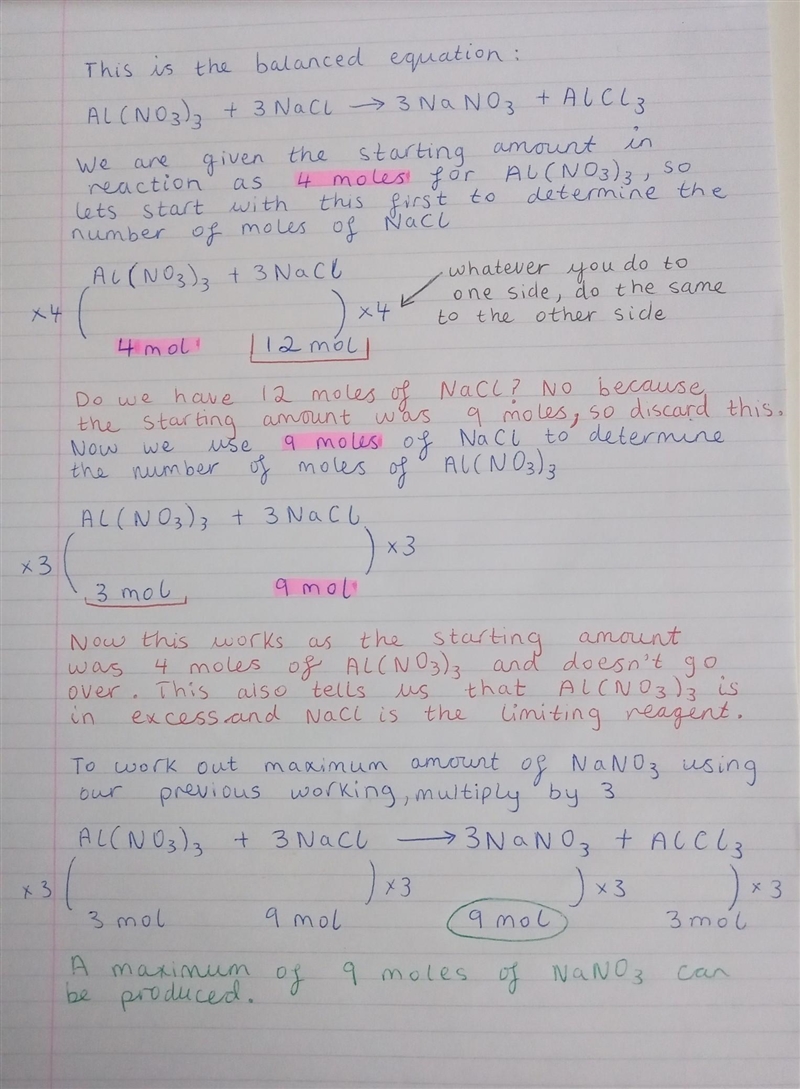 This is the balanced equation:
Al(NO3)3 + 3NaCl → 3NaNO3 + AlCl3
We are given the starting amount in
reaction as 4 moles for Al(NO3)3, so
lets start with this first to determine the
number of moles of NaCl
Al(NO3)3 + 3NaCl
whatever you do to
one side, do the same
to the other side
×4 ( ) ×4
4 mol 12 mol
Do we have 12 moles of NaCl? No because
the starting amount was 9 moles, so discard this.
Now we use 9 moles of NaCl to determine
the number of moles of Al(NO3)3
Al(NO3)3 + 3NaCl
×3 ( ) ×3
3 mol 9 mol
Now this works as the starting amount
was 4 moles of Al(NO3)3 and doesn't go
over. This also tells us that Al(NO3)3 is
in excess and NaCl is the limiting reagent.
To work out maximum amount of NaNO3 using
our previous working, multiply by 3
Al(NO3)3 + 3NaCl → 3NaNO3 + AlCl3
×3 ( ) ×3 ) ×3 ) ×3
3 mol 9 mol 9 mol 3 mol
A maximum of 9 moles of NaNO3 can
be produced.